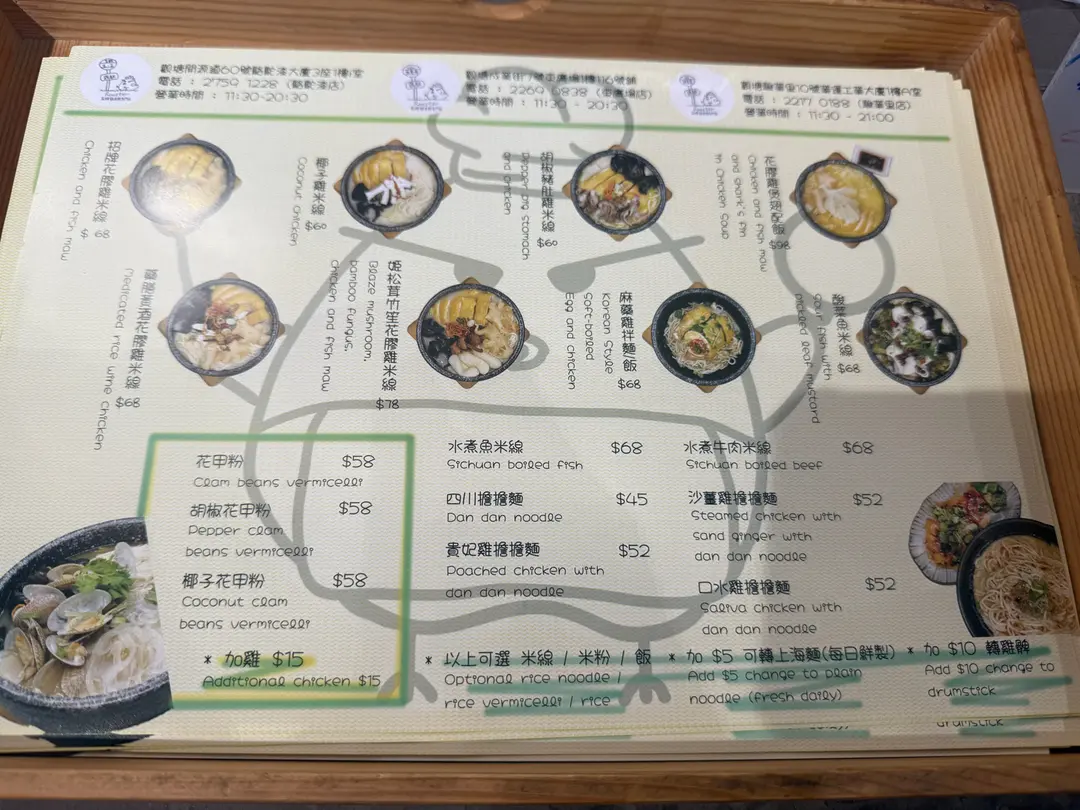 觀塘開源道60號駱駝漆大廈3座1樓
電話 : 2759 1228 (駱駝漆店)
營業時間 : 11:30-20:30
電話 : 2269 0838
營業時間 : 11:30 - 20:30
電話 : 2217 0188
營業時間 : 11:30 - 21:00
招牌花膠雞米線
Chicken and fish maw
$ 68
椰子雞米線
Coconut chicken
$60
胡椒豬肚雞米線
Peppering stomach
and chicken
$60
花膠雞煲翅配飯
Chicken and fish maw
and shark's fin
in Chicken Soup
$98
黃酒花膠雞米線
Medicated rice wine chicken
$68
姬松茸竹笙花膠雞米線
Blaze mushroom,
bamboo fungus,
chicken and fish maw
$78
麻藥雞拌麵飯
Korean Style
Soft-boiled
Egg and chicken
$68
酸菜魚米線
Sour fish with
pickled leaf mustard
$68
花甲粉 $58
Clam beans vermicelli
胡椒花甲粉 $58
Pepper clam
beans vermicelli
椰子花甲粉 $58
Coconut clam
beans vermicelli
* 加雞 $15
Additional chicken $15
水煮魚米線 $68
Sichuan boiled fish
四川擔擔麵 $45
Dan dan noodle
貴妃雞擔擔麵 $52
Poached chicken with
dan dan noodle
水煮牛肉米線 $68
Sichuan boiled beef
沙薑雞擔擔麵 $52
Steamed chicken with
sand ginger with
dan dan noodle
口水雞擔擔麵 $52
Saliva chicken with
dan dan noodle
* 以上可選 米線 / 米粉 / 飯
Optional rice noodle /
rice vermicelli / rice
* 加 $5 可轉上海麵(每日鮮製)
Add $5 change to plain
noodle (fresh daily)
* 加 $10 轉雞髀
Add $10 change to
drumstick
drumstick